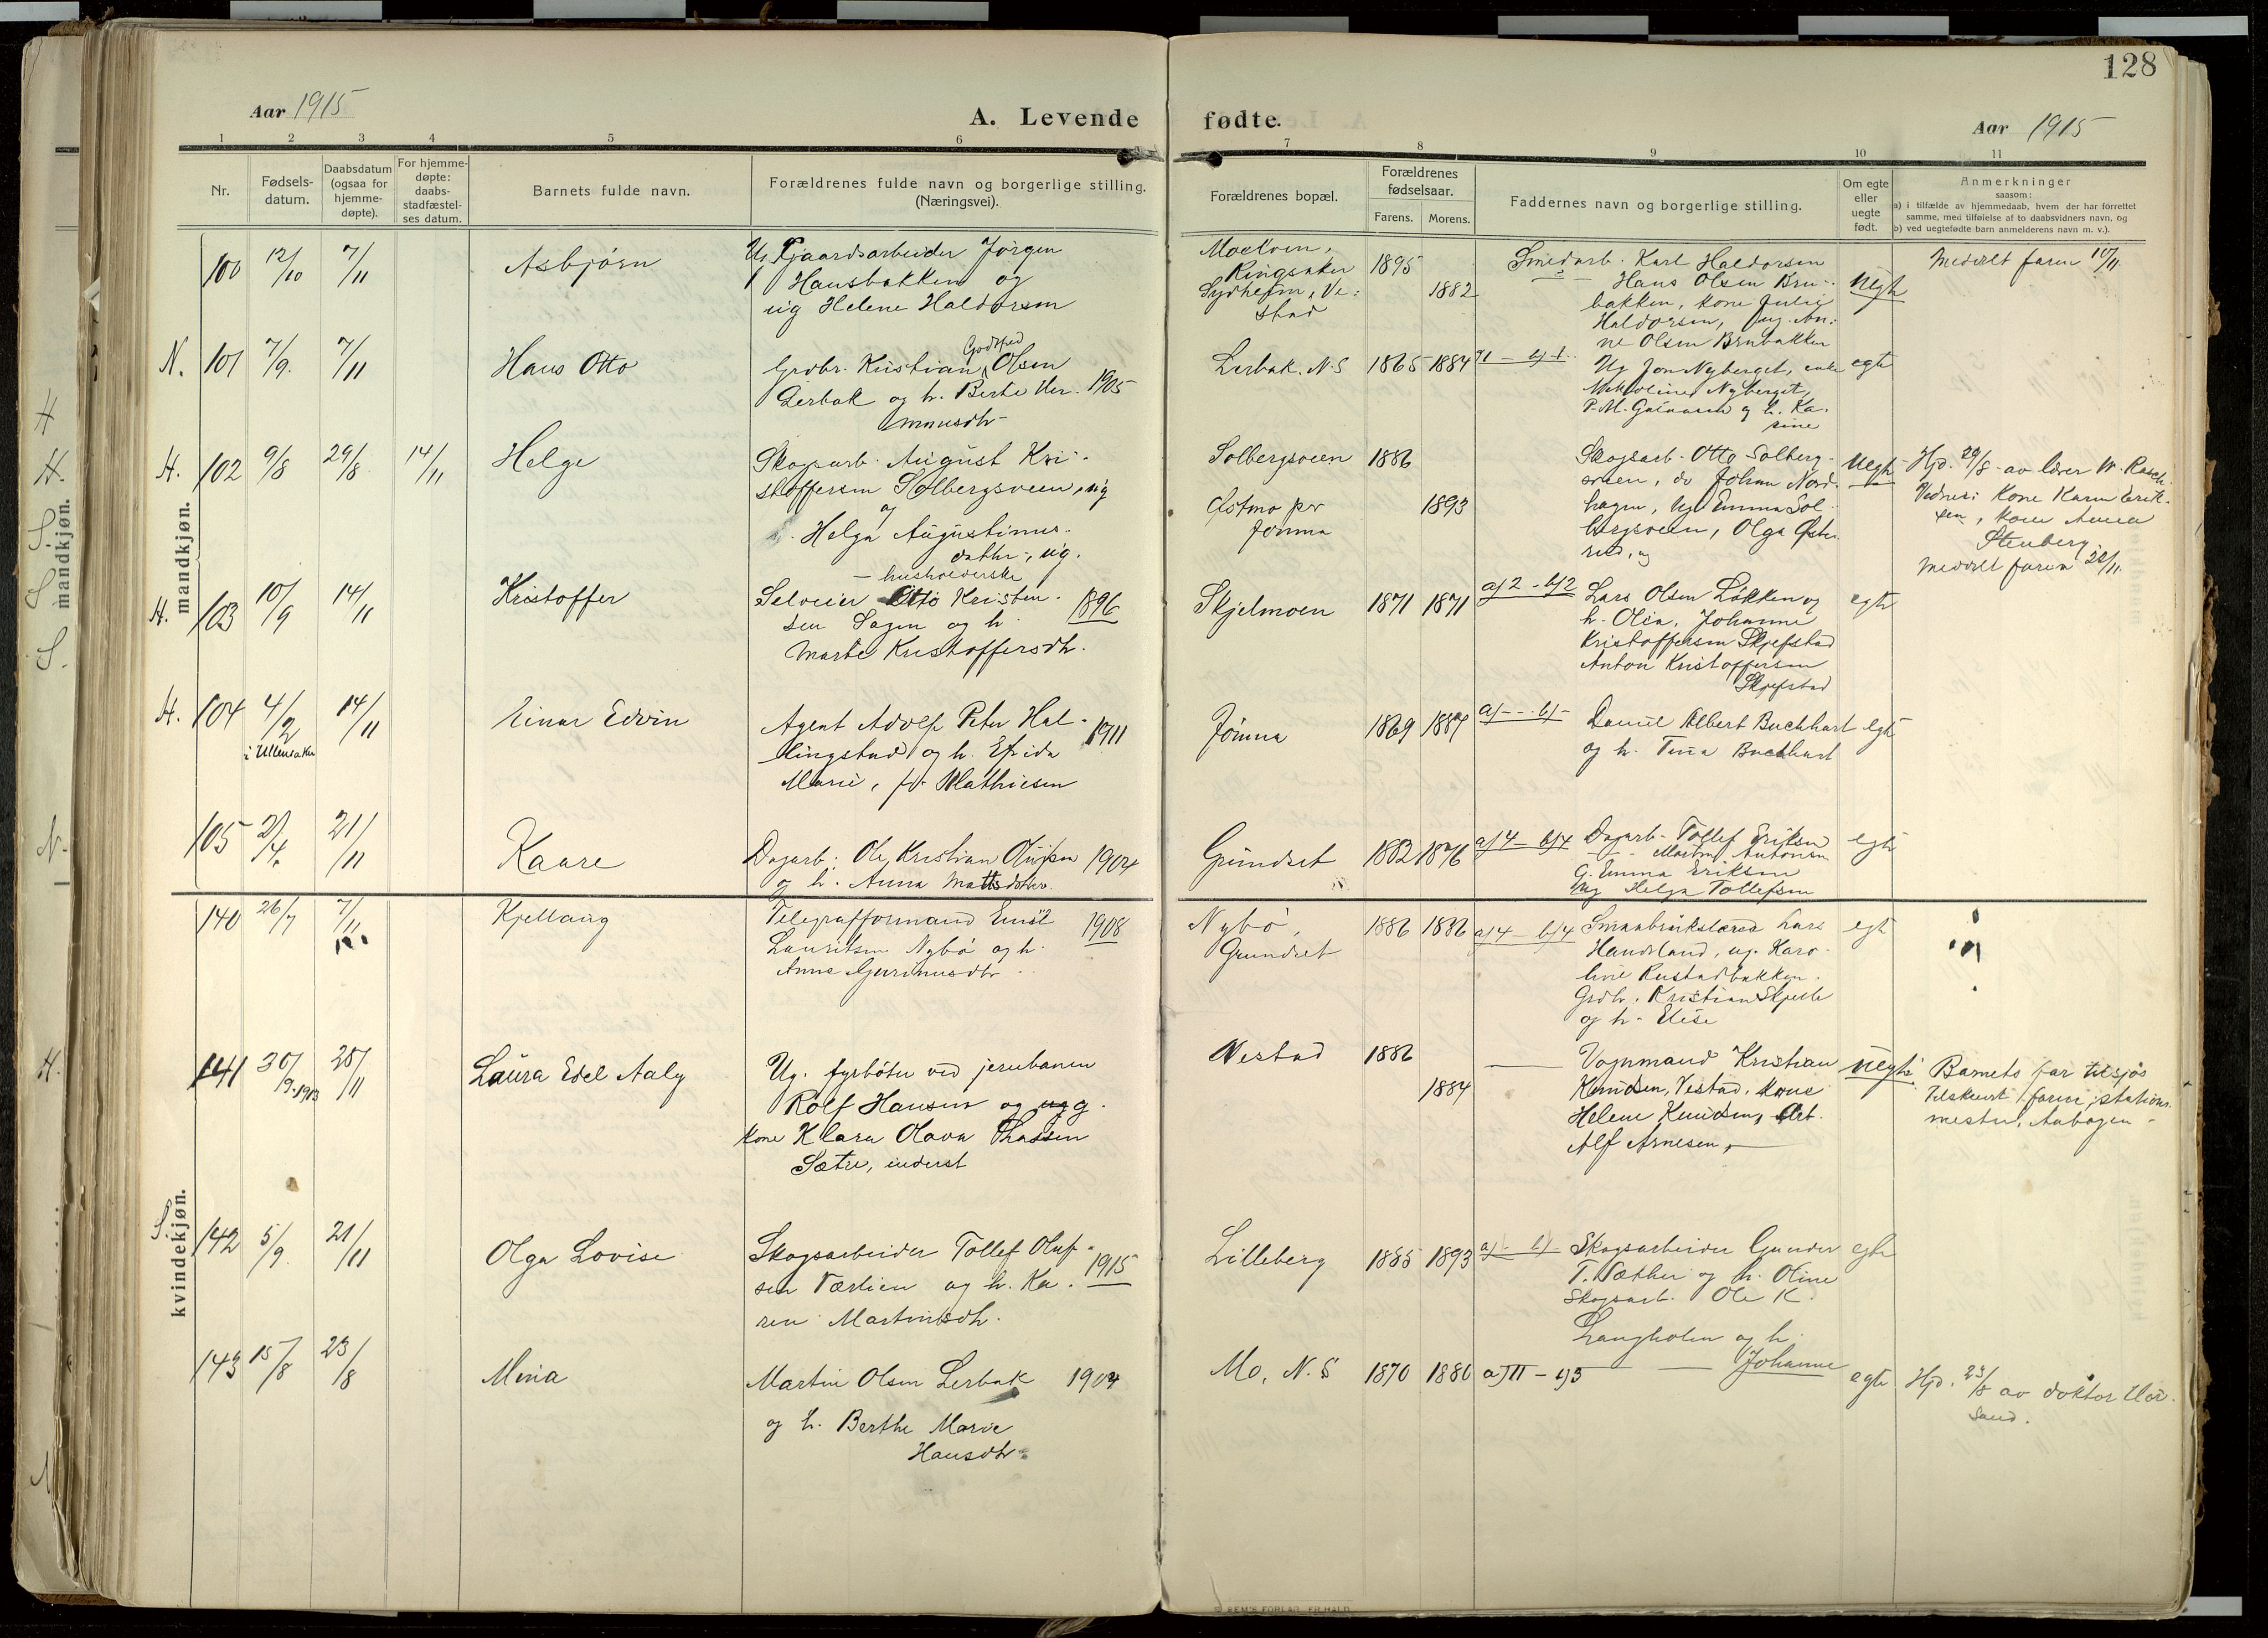 128
Aar 1915
A. Levende fødte.
Aar 1915
1 2 3 4 5 6 7 8 9 10 11
Nr.
Fødsels-
datum.
Daabsdatum
(ogsaa for
hjemme-
døpte).
For hjemme-
døpte:
daabs-
stadfæstel-
ses datum.
Barnets fulde navn.
Forældrenes fulde navn og borgerlige stilling.
(Næringsvei).
Forældrenes bopæl.
Forældrenes
fødselsaar.
Farens. Morens.
Faddernes navn og borgerlige stilling.
Om egte
eller
uegte
født.
Anmerkninger
saasom:
a) i tilfælde av hjemmedaab, hvem der har forrettet
samme, med tilføielse af to daabsvidners navn, og
b) ved uegtefødte barn anmelderens navn m. v.).
mandkjøn.
100 12/10 7/11
Asbjørn
Jørgen
Hansbakken og
ug Helene Haldorsen
Ringsaker 1895
1882
stad
Smedarb. Karl Haldorsen
Hans Olsen Bru-
bakken, kone Julie
Haldorsen,
ne Olsen Brubakken
Uegte
Meddelt faren 10/11.
N. 101 7/9. 7/11
Hans Otto
Grdbr. Kristian Godtfred Olsen
Lerbak og h. Berte Her- 1905
mansdtr
Lerbak. N.S 1865 1884
Ug Jon Nyberget, enke
Nyberget,
P. M. og h. Ka-
sine
egte
H. 102 9/8 29/8 14/11
Helge
Skogsarb. August Kri-
stoffersen Solbergsveen, ug
og
Helga Augustinus-
datter, ug.
husholderske
Solbergsveen 1886
Østmo pr 1893
Jømna
Skogsarb. Otto Solberg-
sveen, do Johan Nord-
hagen, ug Emma Sol-
bergsveen, Olga
Uegte
Hjd. 29/8 av lærer W. Rasch.
Vidner: Kone Karen Erik-
sen, kone Anna
Stenberg.
Meddelt faren 22/11.
H. 103 10/9 14/11
Kristoffer
Selveier Otto Kristen- 1896
sen Sagen og h.
Marte Kristoffersdtr.
Skjelmoen 1871 1871
a) 2 - b) 2
Lars Olsen Løkken og
h. Olea, Johanne
Kristoffersen Skjefstad
Anton Kristoffersen
Skjefstad
egte
H. 104 4/2 14/11
i Ullensaker
Einar Edvin
Agent Adolf Peter Hal- 1911
lingstad og h. Efrida
Marie, f. Mathiesen
Jømna 1869 1887
a) - - b) -
Daniel Albert Buchhart
og h. Tina Buchhart
egte
105 2/4. 21/11
Kaare
Dagarb. Ole Kristian Olufsen 1904
og h. Anna Mattsdotter.
Grundset 1882 1876
a) 4 - b) 4
Dagarb. Tollef Eriksen
Martin Antonsen
G. Emma Eriksen
ug Helga Tollefsen
egte
kvindekjøn.
140 26/7 7/11
Kjellaug
Telegrafformand Emil 1908
Lauritsen Nybø og h.
Anne Gurinusdtr
Nybø, 1886 1886
Grundset
a) 4 - b) 4
Smaabrukslærer Lars
Handeland, ug. Karo-
line Rustadbakken.
Grdbr. Kristian Skjelle
og h. Elise
egte
141 30/9. 1913 28/11
Laura Edel Aaly
Ug. fyrbøter ved jernbanen
Rolf Hansen og g.
kone Klara Olava Thassen
Sætre, inderst
Vestad 1886
1884
Vognmand Kristian
Knudsen, Vestad, kone
Helene Knudsen, Arb.
Alf Arnesen,
Uegte
Barnets far tilsjøs
Tilskrevet faren, stations-
mester, Aabogen
S. 142 5/9. 21/11
Olga Lovise
Skogsarbeider Tollef Oluf- 1915
sen Værlien og h. Ka-
ren Martinsdtr.
Lilleberg 1885 1893
a) - b) -
Skogsarbeider Gunder
T. Næther og h. Oline
Skogsarb. Ole K.
Langholen og h.
Johanne
egte
143 15/8 23/8
Mina
Martin Olsen Lerbak 1904
og h. Berthe Marie
Hansdtr
Mo, N.S 1870 1880
a) 11 - b) 3
egte
Hjd. 23/8 av doktor
sand.